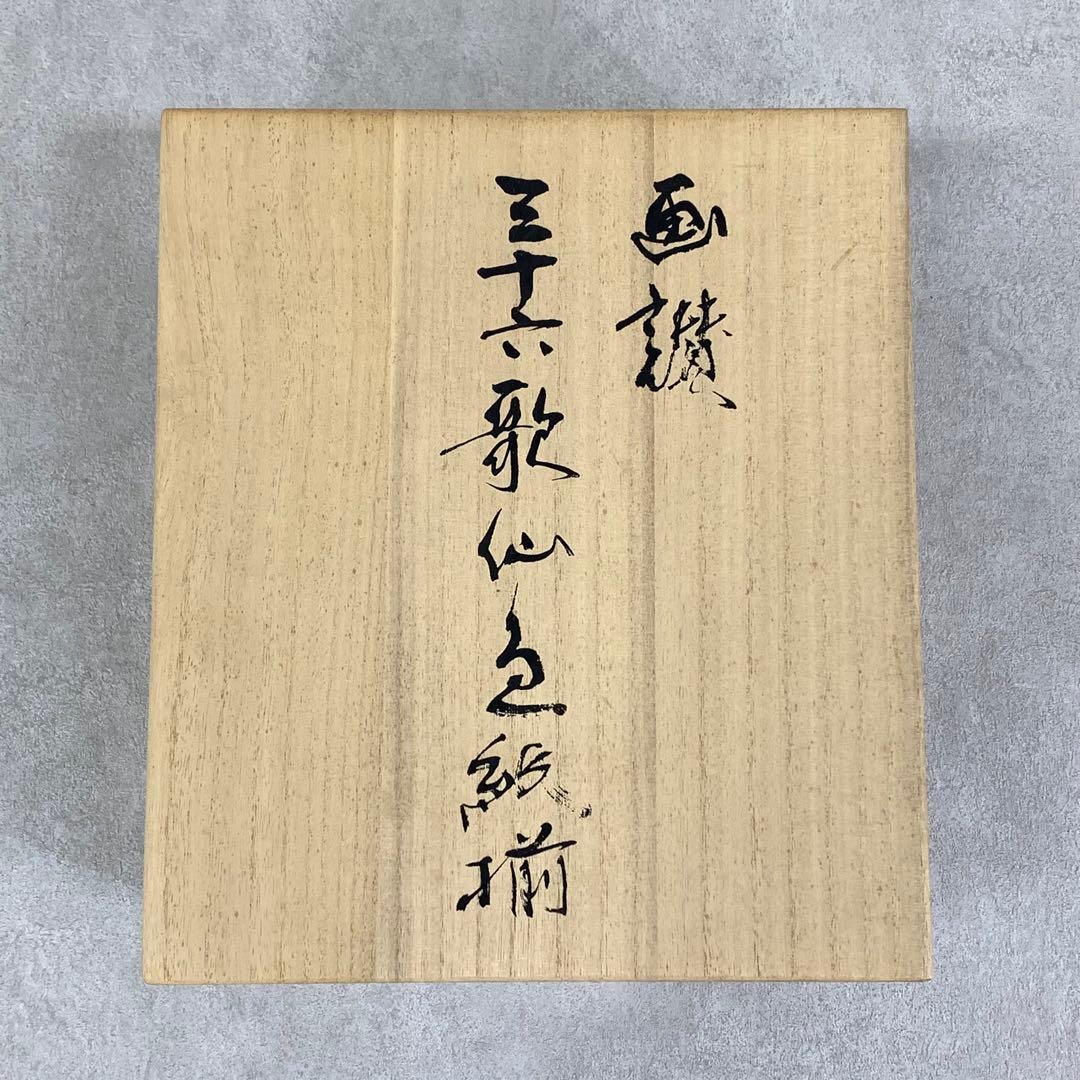 画讃
三十六歌仙色紙揃